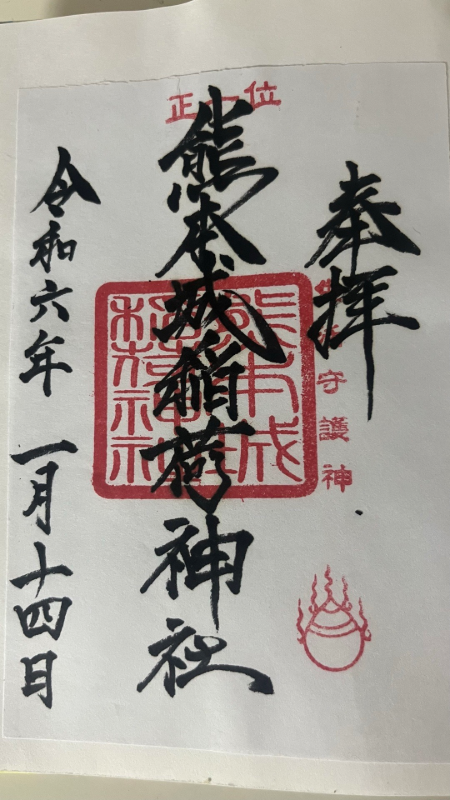 奉拝
守護神
正一位
熊本城稲荷神社
熊本城稲荷神社
令和六年 一月十四日